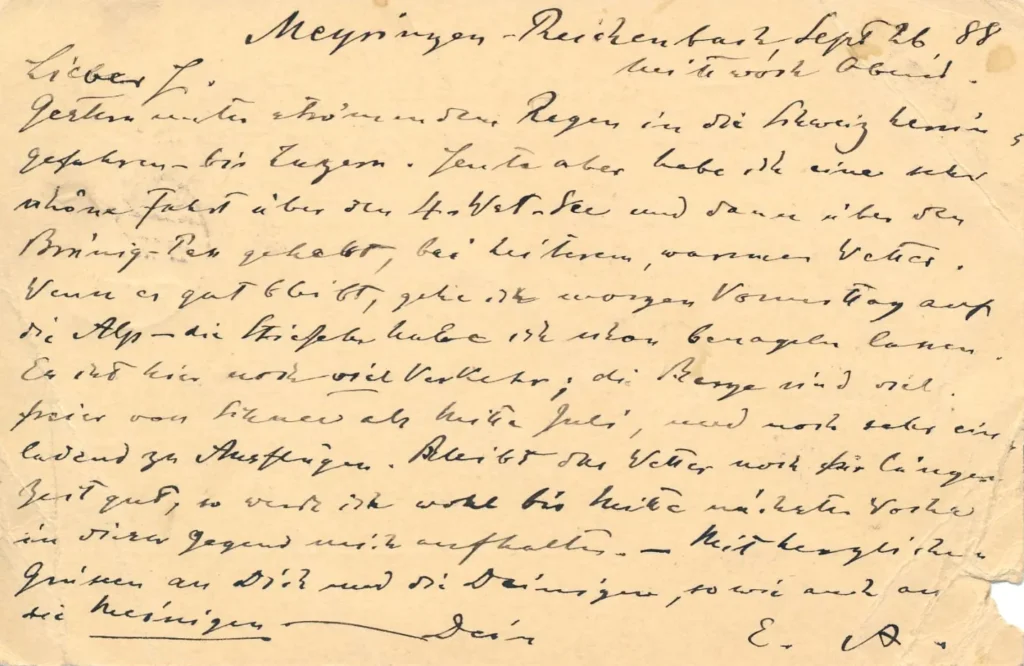 Meyringen-Reichenbach, Sept 26, 88
Mittwoch Abend.
Lieber J.
Gestern unter strömendem Regen in die Schweiz herein
gefahren – bis Luzern. Heute aber habe ich eine sehr
schöne Fahrt über den 4-Wst-See und dann über den
Brünig-Pass gehabt, bei heiterem, warmen Wetter.
Wenn es gut bleibt, gehe ich morgen Vormittag auf
die Alp – die Stiefel habe ich schon benageln lassen.
Es ist hier noch viel Verkehr; die Berge sind viel
freier von Schnee als Mitte Juli, und noch sehr ein
ladend zu Ausflügen. Bleibt das Wetter noch für länger
Zeit gut, so werde ich wohl bis Mitte nächster Woche
in dieser Gegend mich aufhalten. – Mit herzlichen
Grüssen an Dich und die Deinigen, sowie auch an
die Meinigen – Dein E. A.